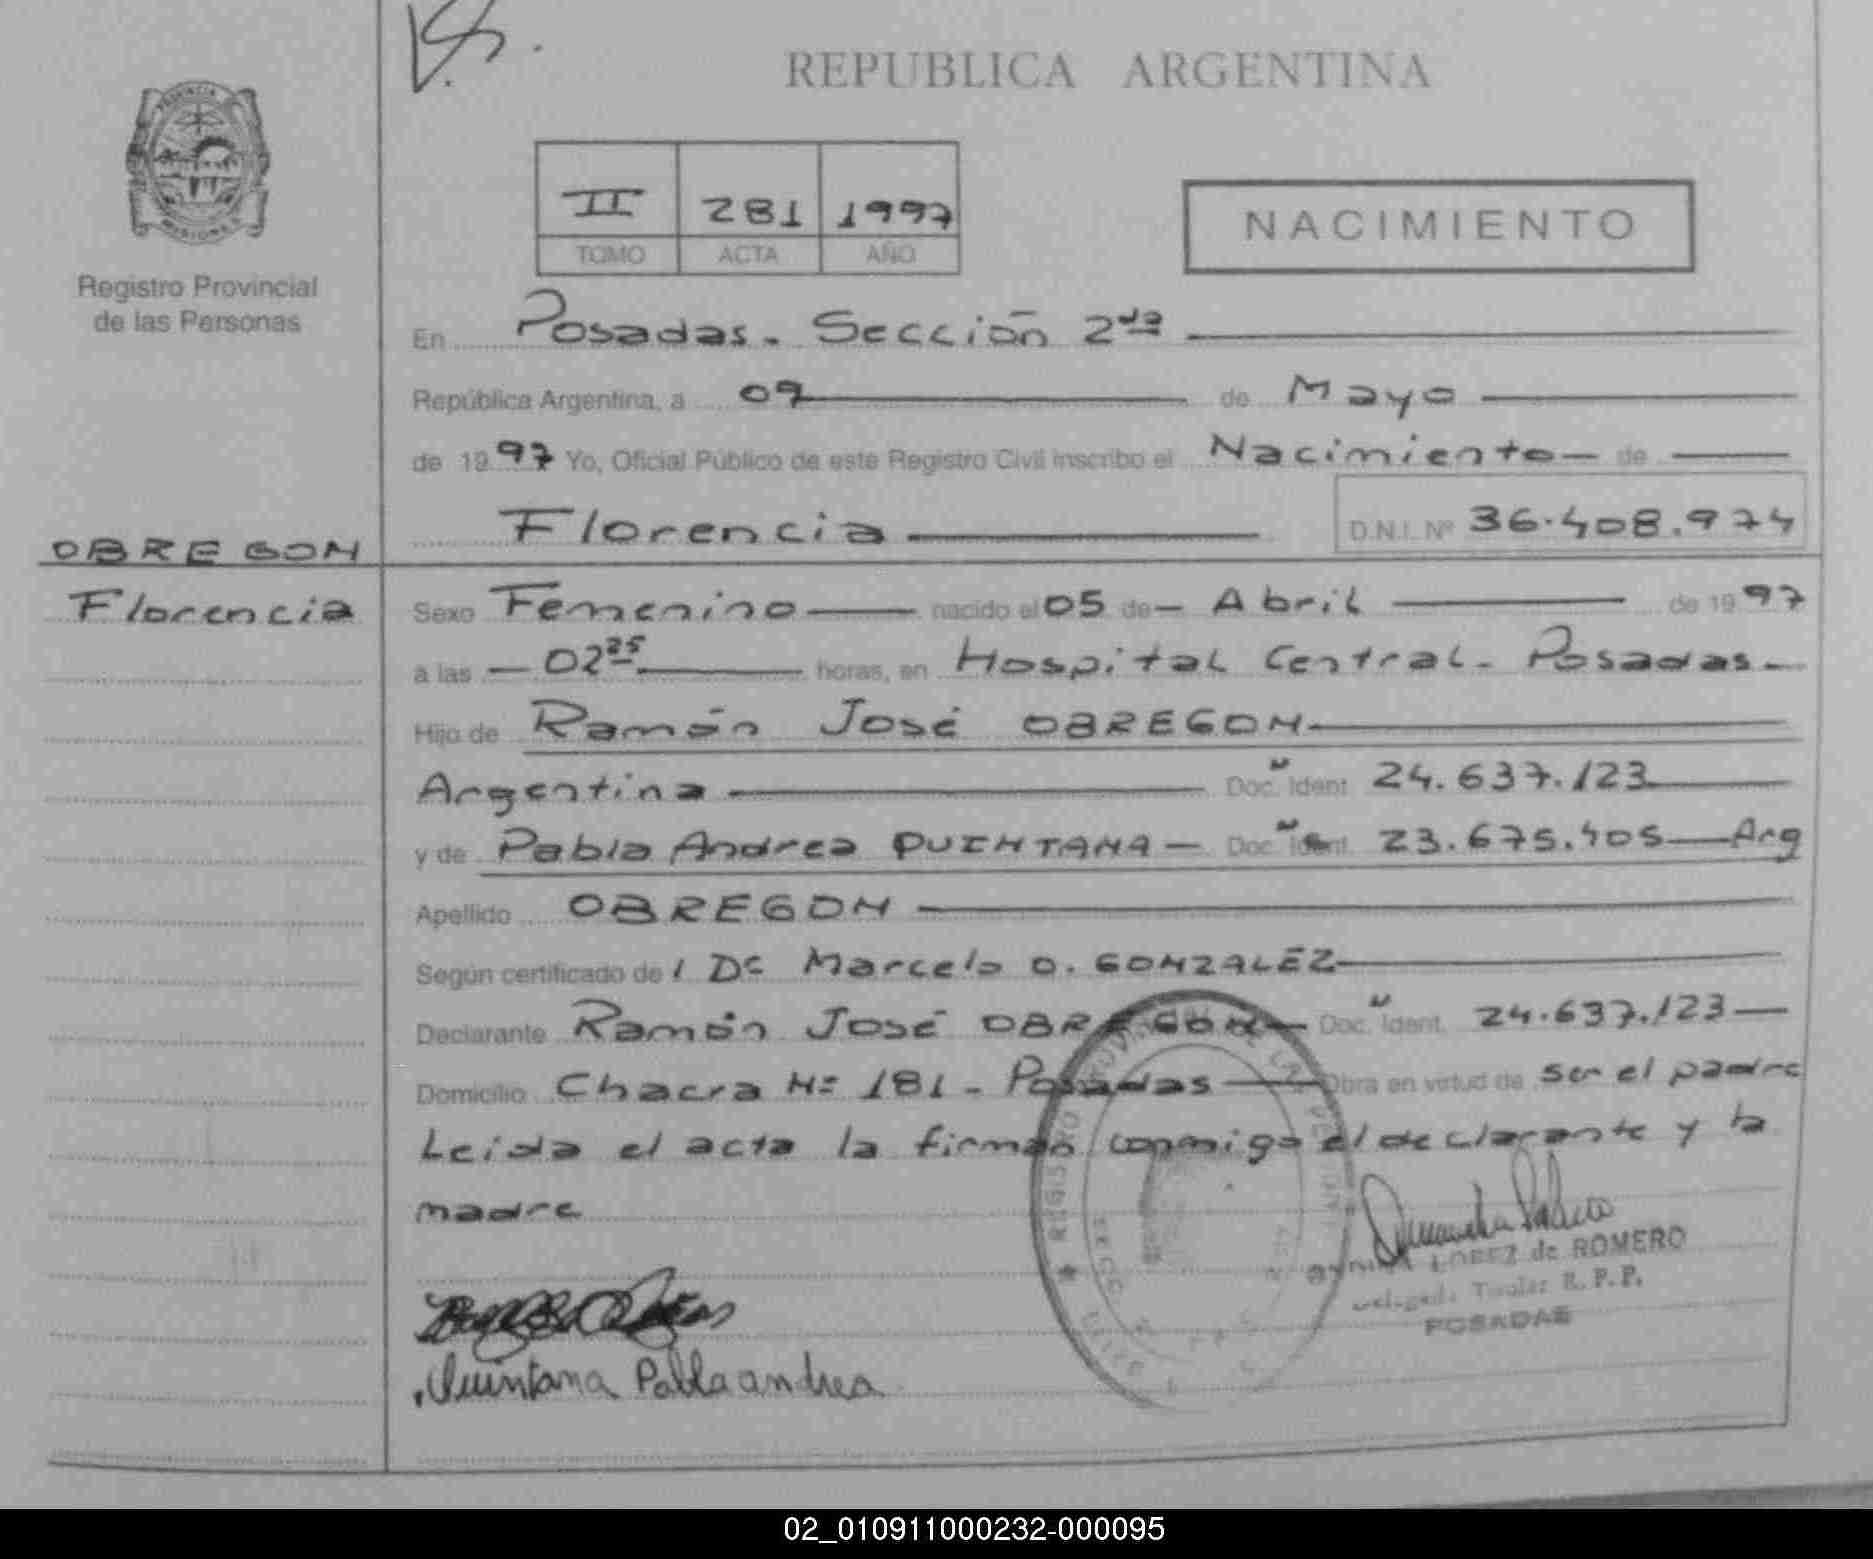 REPUBLICA ARGENTINA
PROVINCIA
MISIONES
Registro Provincial
de las Personas
II 281 1997
TOMO ACTA AÑO
NACIMIENTO
En Posadas. Sección 2da
República Argentina, a 09 de Mayo
de 1997 Yo, Oficial Público de este Registro Civil inscribo el Nacimiento de
Florencia D.N.I. Nº 36.408.974
OBREGON
Florencia
Sexo Femenino nacido el 05 de Abril de 1997
a las 02 25 horas, en Hospital Central. Posadas.
Hijo de Ramón José OBREGON
Argentina Doc. Ident. 24.637.123
y de Pabla Andrea QUINTANA Doc. Ident. 23.675.405 Arg
Apellido OBREGON
Según certificado de l Dr Marcelo O. GONZALEZ
Declarante Ramón José OBREGON Doc. Ident. 24.637.123
Domicilio Chacra Nº 181 - Posadas Obra en virtud de ser el padre
Leida el acta la firman conmigo el declarante y la
madre
LOPEZ de ROMERO
Titular R.P.P.
POSADAS
Quintana Pabla andrea
02_010911000232-000095